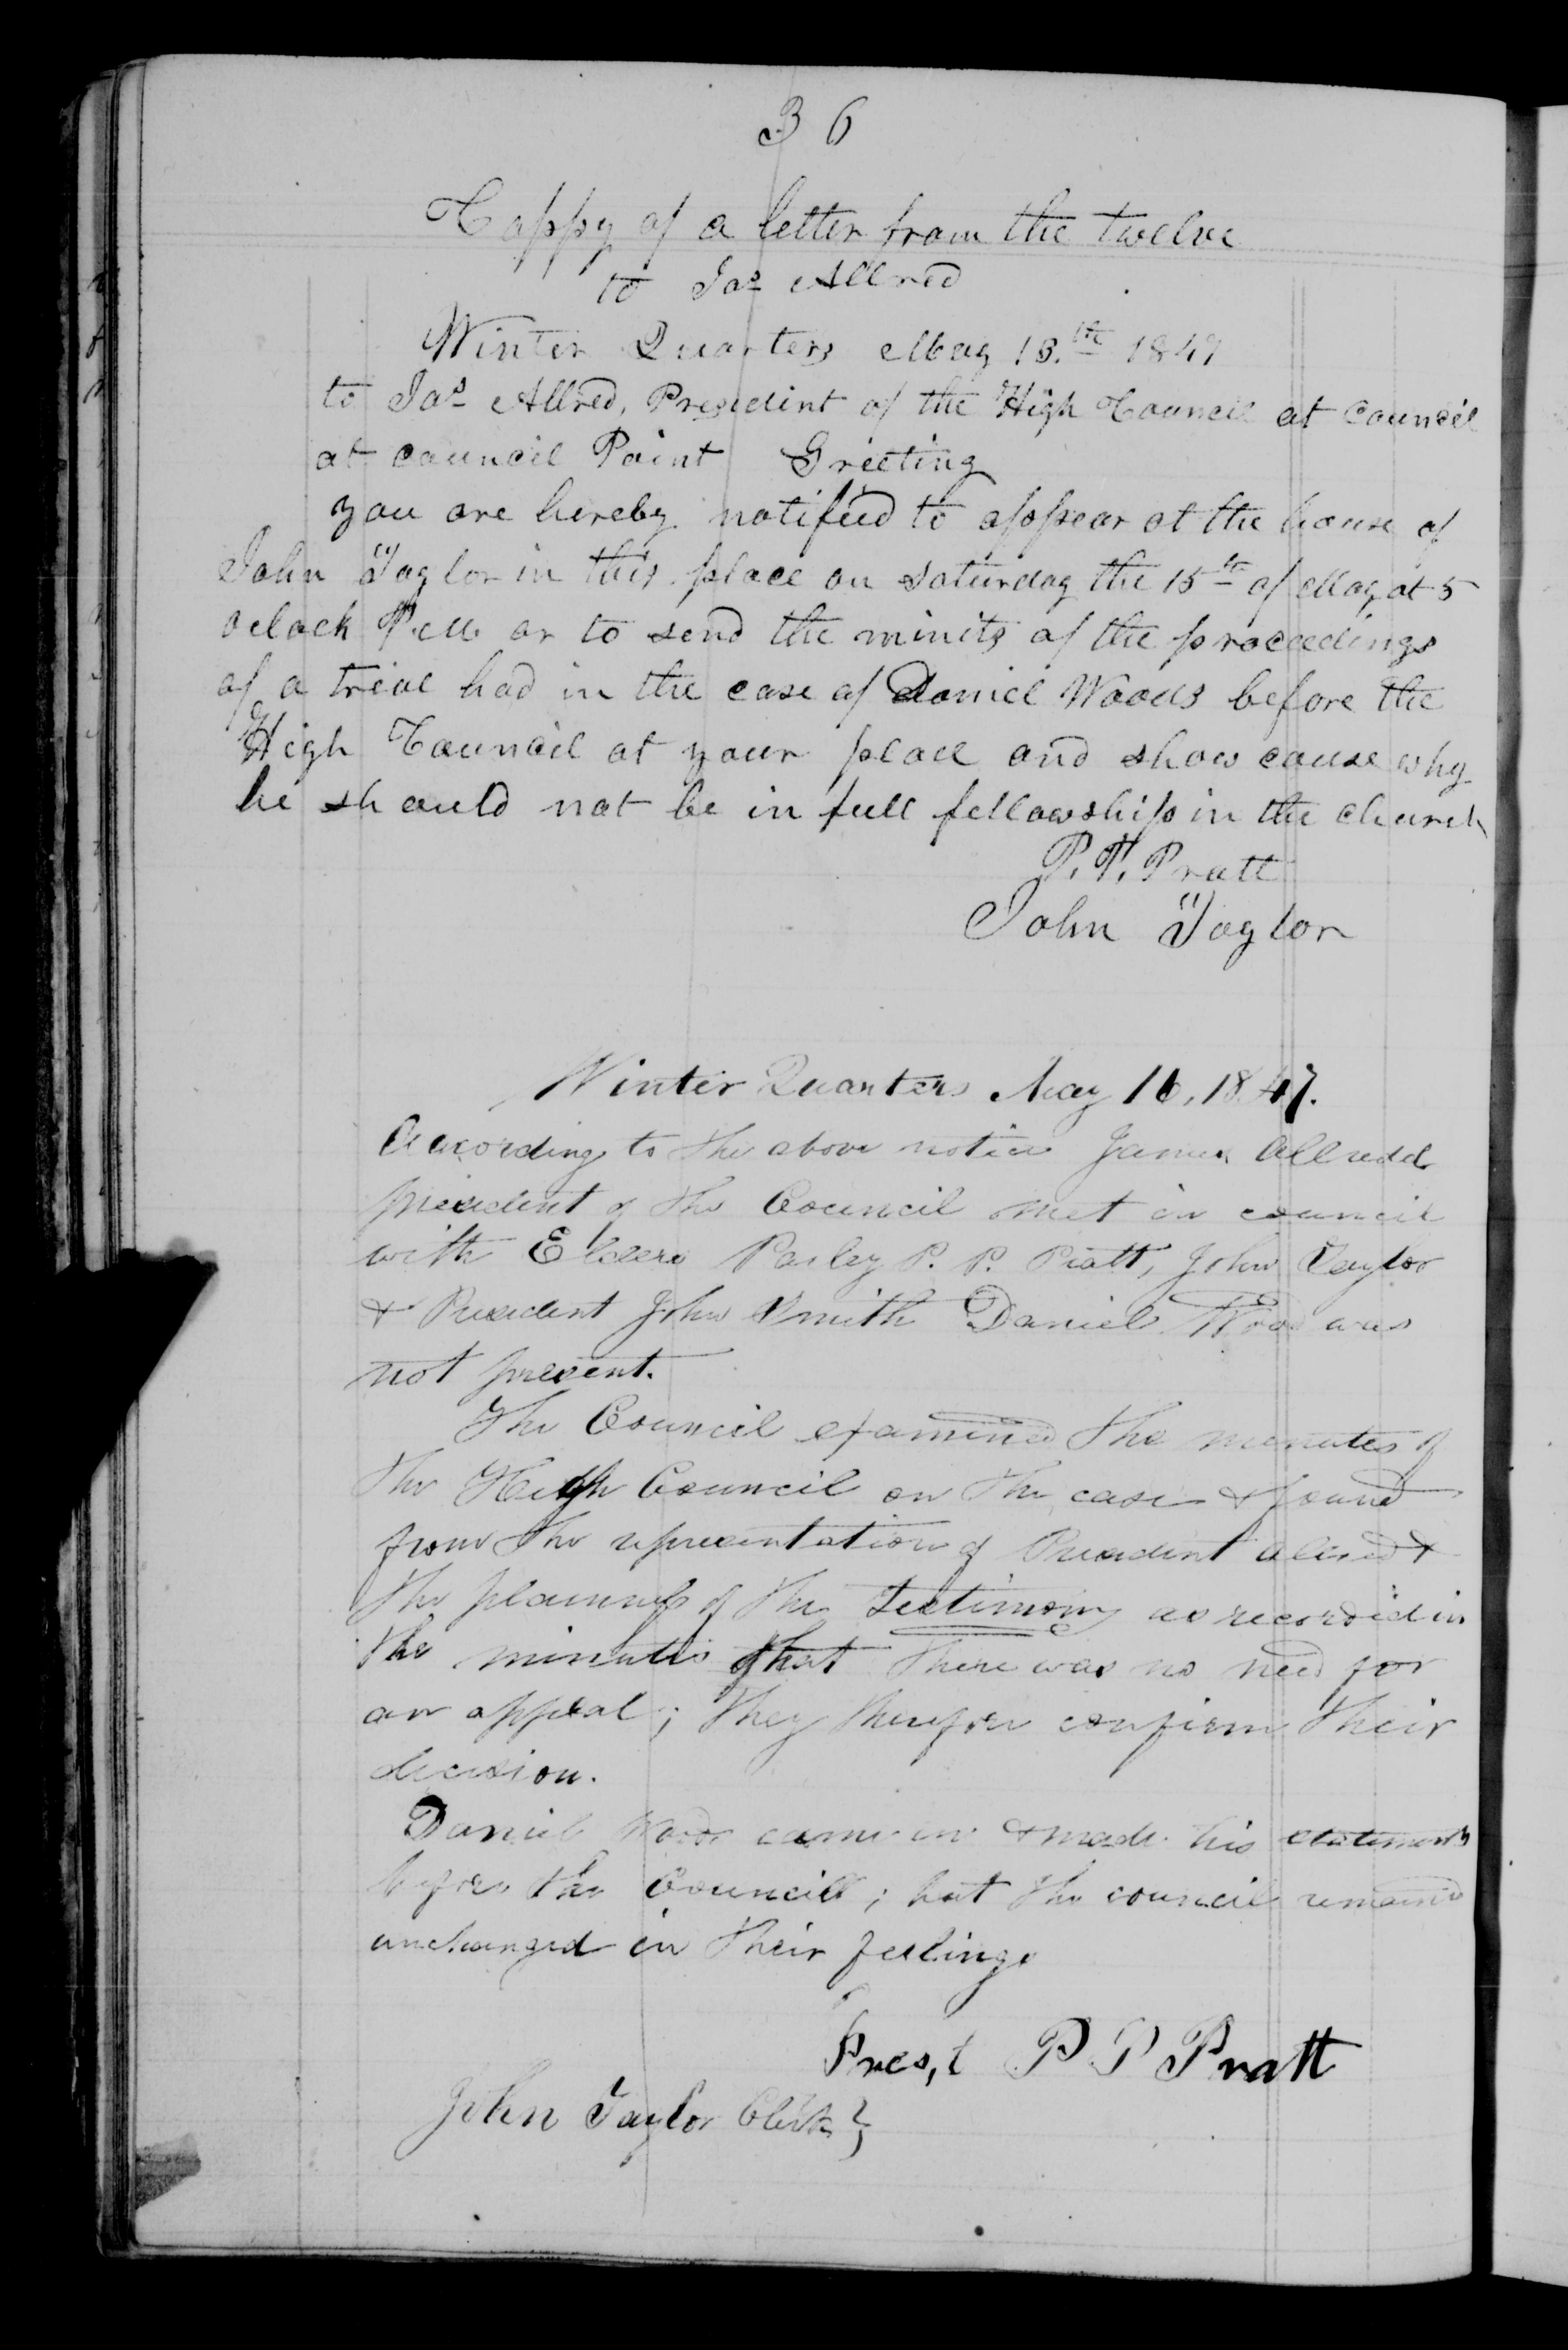 36
Coppy of a letter from the twelve
to Jas Allred
Winter Quarters May 13.th 1847
to Jas Allred, President of the High Council at Council
at council Point Greeting
you are hereby notified to appear at the house of
John Taylor in this place on Saturday the 15th of May at 5
oclock P.M. or to send the minits of the proceedings
of a trial had in the case of Daniel Woods before the
High Council at your place and show cause why
he should not be in full fellowship in the church
P. P. Pratt
John Taylor
Winter Quarters May 16, 1847.
According to the above notice James Allredd
president of the Council met in council
with Elders Parley P. P. Pratt, John Taylor
& President John Smith Daniel Wood was
not present.
The Council examined the minutes of
the High Council on the case & found
from the representation of President Alred &
the plainness of the Testimony as recorded in
the minutes that there was no need for
an appeal; they therefore confirm their
decision.
Daniel Wood came in & made his statements
before the Council; but the council remained
unchanged in their feelings
Pres,t P P Pratt
John Taylor Clerk }